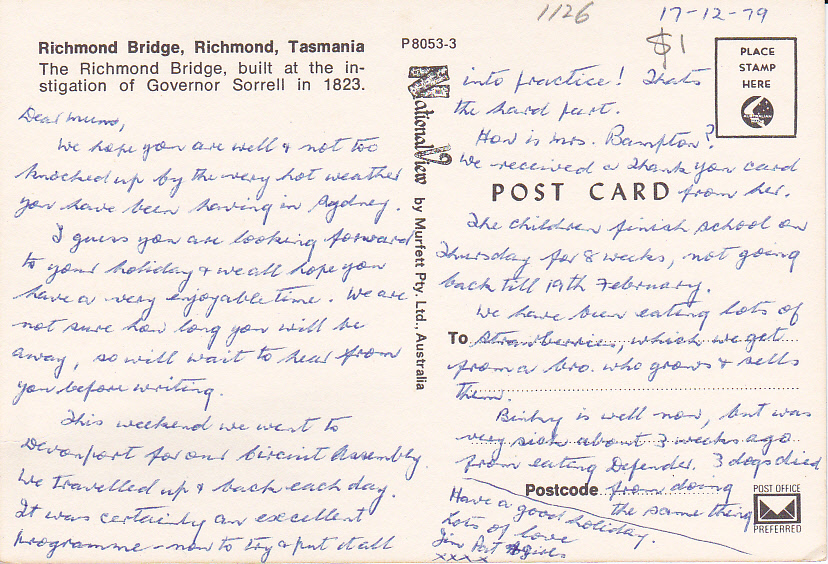 1126
17-12-79
$1
Richmond Bridge, Richmond, Tasmania
The Richmond Bridge, built at the in-
stigation of Governor Sorrell in 1823.
P8053-3
PLACE
STAMP
HERE
Dear Mums,
We hope you are well & not too
knocked up by the very hot weather
you have been having in Sydney.
I guess you are looking forward
to your holiday & we all hope you
have a very enjoyable time. We are
not sure how long you will be
away, so will wait to hear from
you before writing.
This weekend we went to
Devonport for our Circuit Assembly.
We travelled up & back each day.
It was certainly an excellent
programme – now to try & put it all
NationalView by Murfett Pty. Ltd., Australia
into practice! Thats
the hard part.
How is Mrs. Bampton?
We received a thank you card
POST CARD from her.
The children finish school on
Thursday for 8 weeks, not going
back till 19th February.
We have been eating lots of
To strawberries, which we get
from a bro. who grows & sells
them.
Binky is well now, but was
very sick about 3 weeks ago
from eating Defender. 3 dogs died
Postcode from doing
the same thing
Have a good holiday.
Lots of love
Jim Pat & girls
xxxx
POST OFFICE
PREFERRED